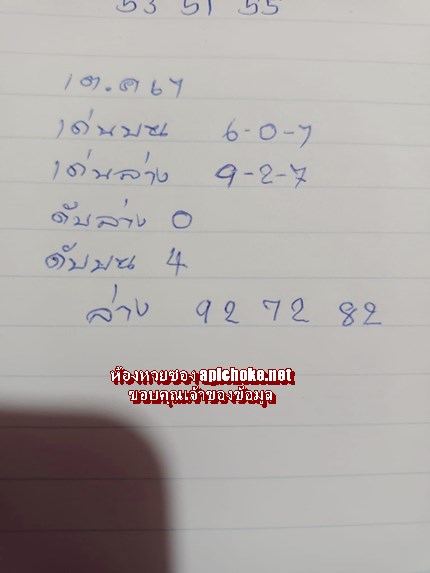 53 51 55
เด่นบน 6-0-7
เด่นล่าง 9-2-7
ดับล่าง 0
ดับบน 4
ล่าง 92 72 82
ห้องหวยซอง apichoke.net
ขอบคุณเจ้าของข้อมูล